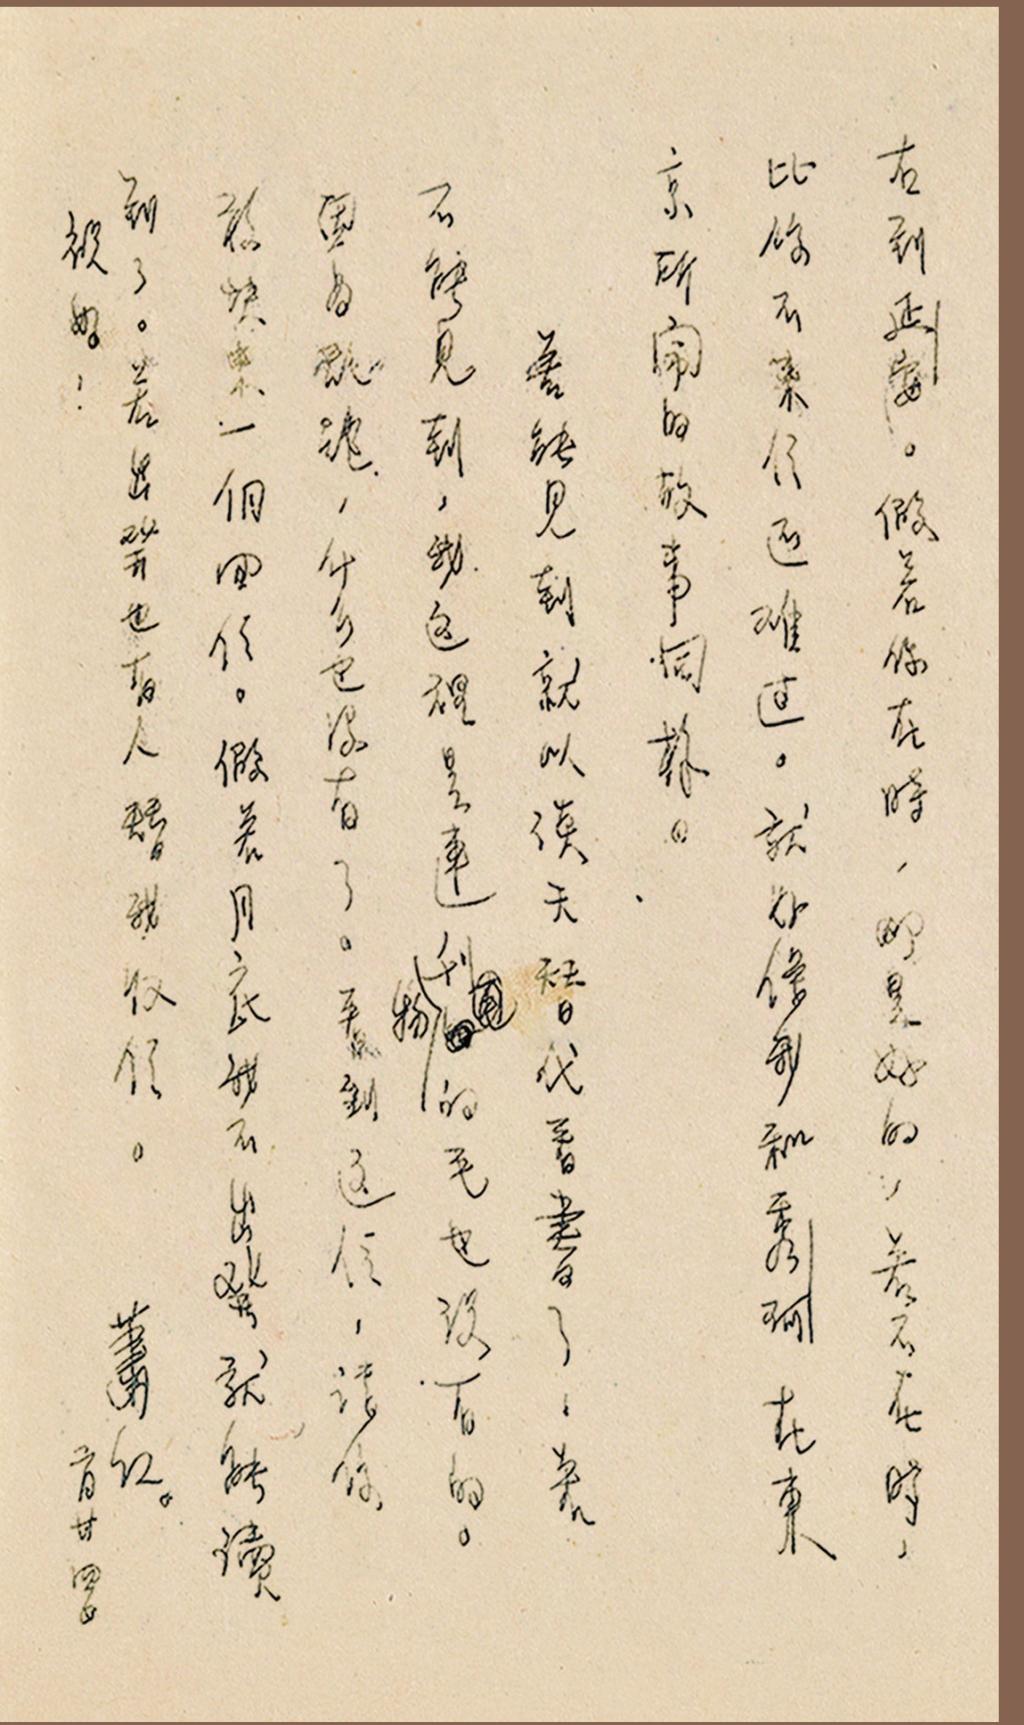 在到延安。假若你在時，那是好的，若不在時，
比你不來信還難过。就好像我和秀珂在東
京所鬧的故事同樣。
若能見到就以談天替代著書了，若
不能見到，我这裡是連刊物的毛也沒有的。
因为亂跑，什么也沒有了。看到这信，請你
赶快來一個回信。假若月底我不出發就能讀
到了。若出發也有人替我收信。
祝好！
蕭紅。
二月廿四日